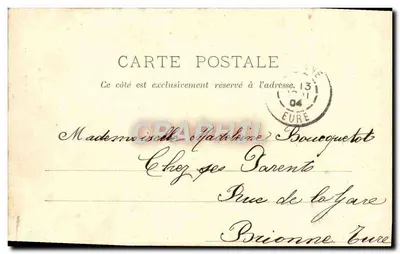 CARTE POSTALE
Ce côté est exclusivement réservé à l'adresse.
13
04
EURE
Mademoiselle Madeleine Boucquetot
Chez ses Parents
Rue de la Gare
Brionne Eure